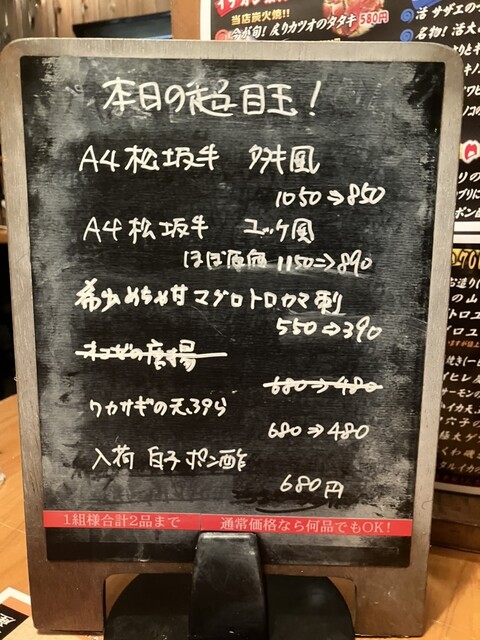 当店炭火焼!!
今が旬!炙りカツオのタタキ 580円
本日の超目玉!
A4松坂牛 タタキ風
1050⇒850
A4松坂牛 ユッケ風
ほぼ原価 1150⇒890
希少めちゃ甘マグロトロカマ刺
550⇒390
オコゼの唐揚
680⇒480
ワカサギの天ぷら
680⇒480
入荷 白子ポン酢
680円
1組様合計2品まで 通常価格なら何品でもOK!